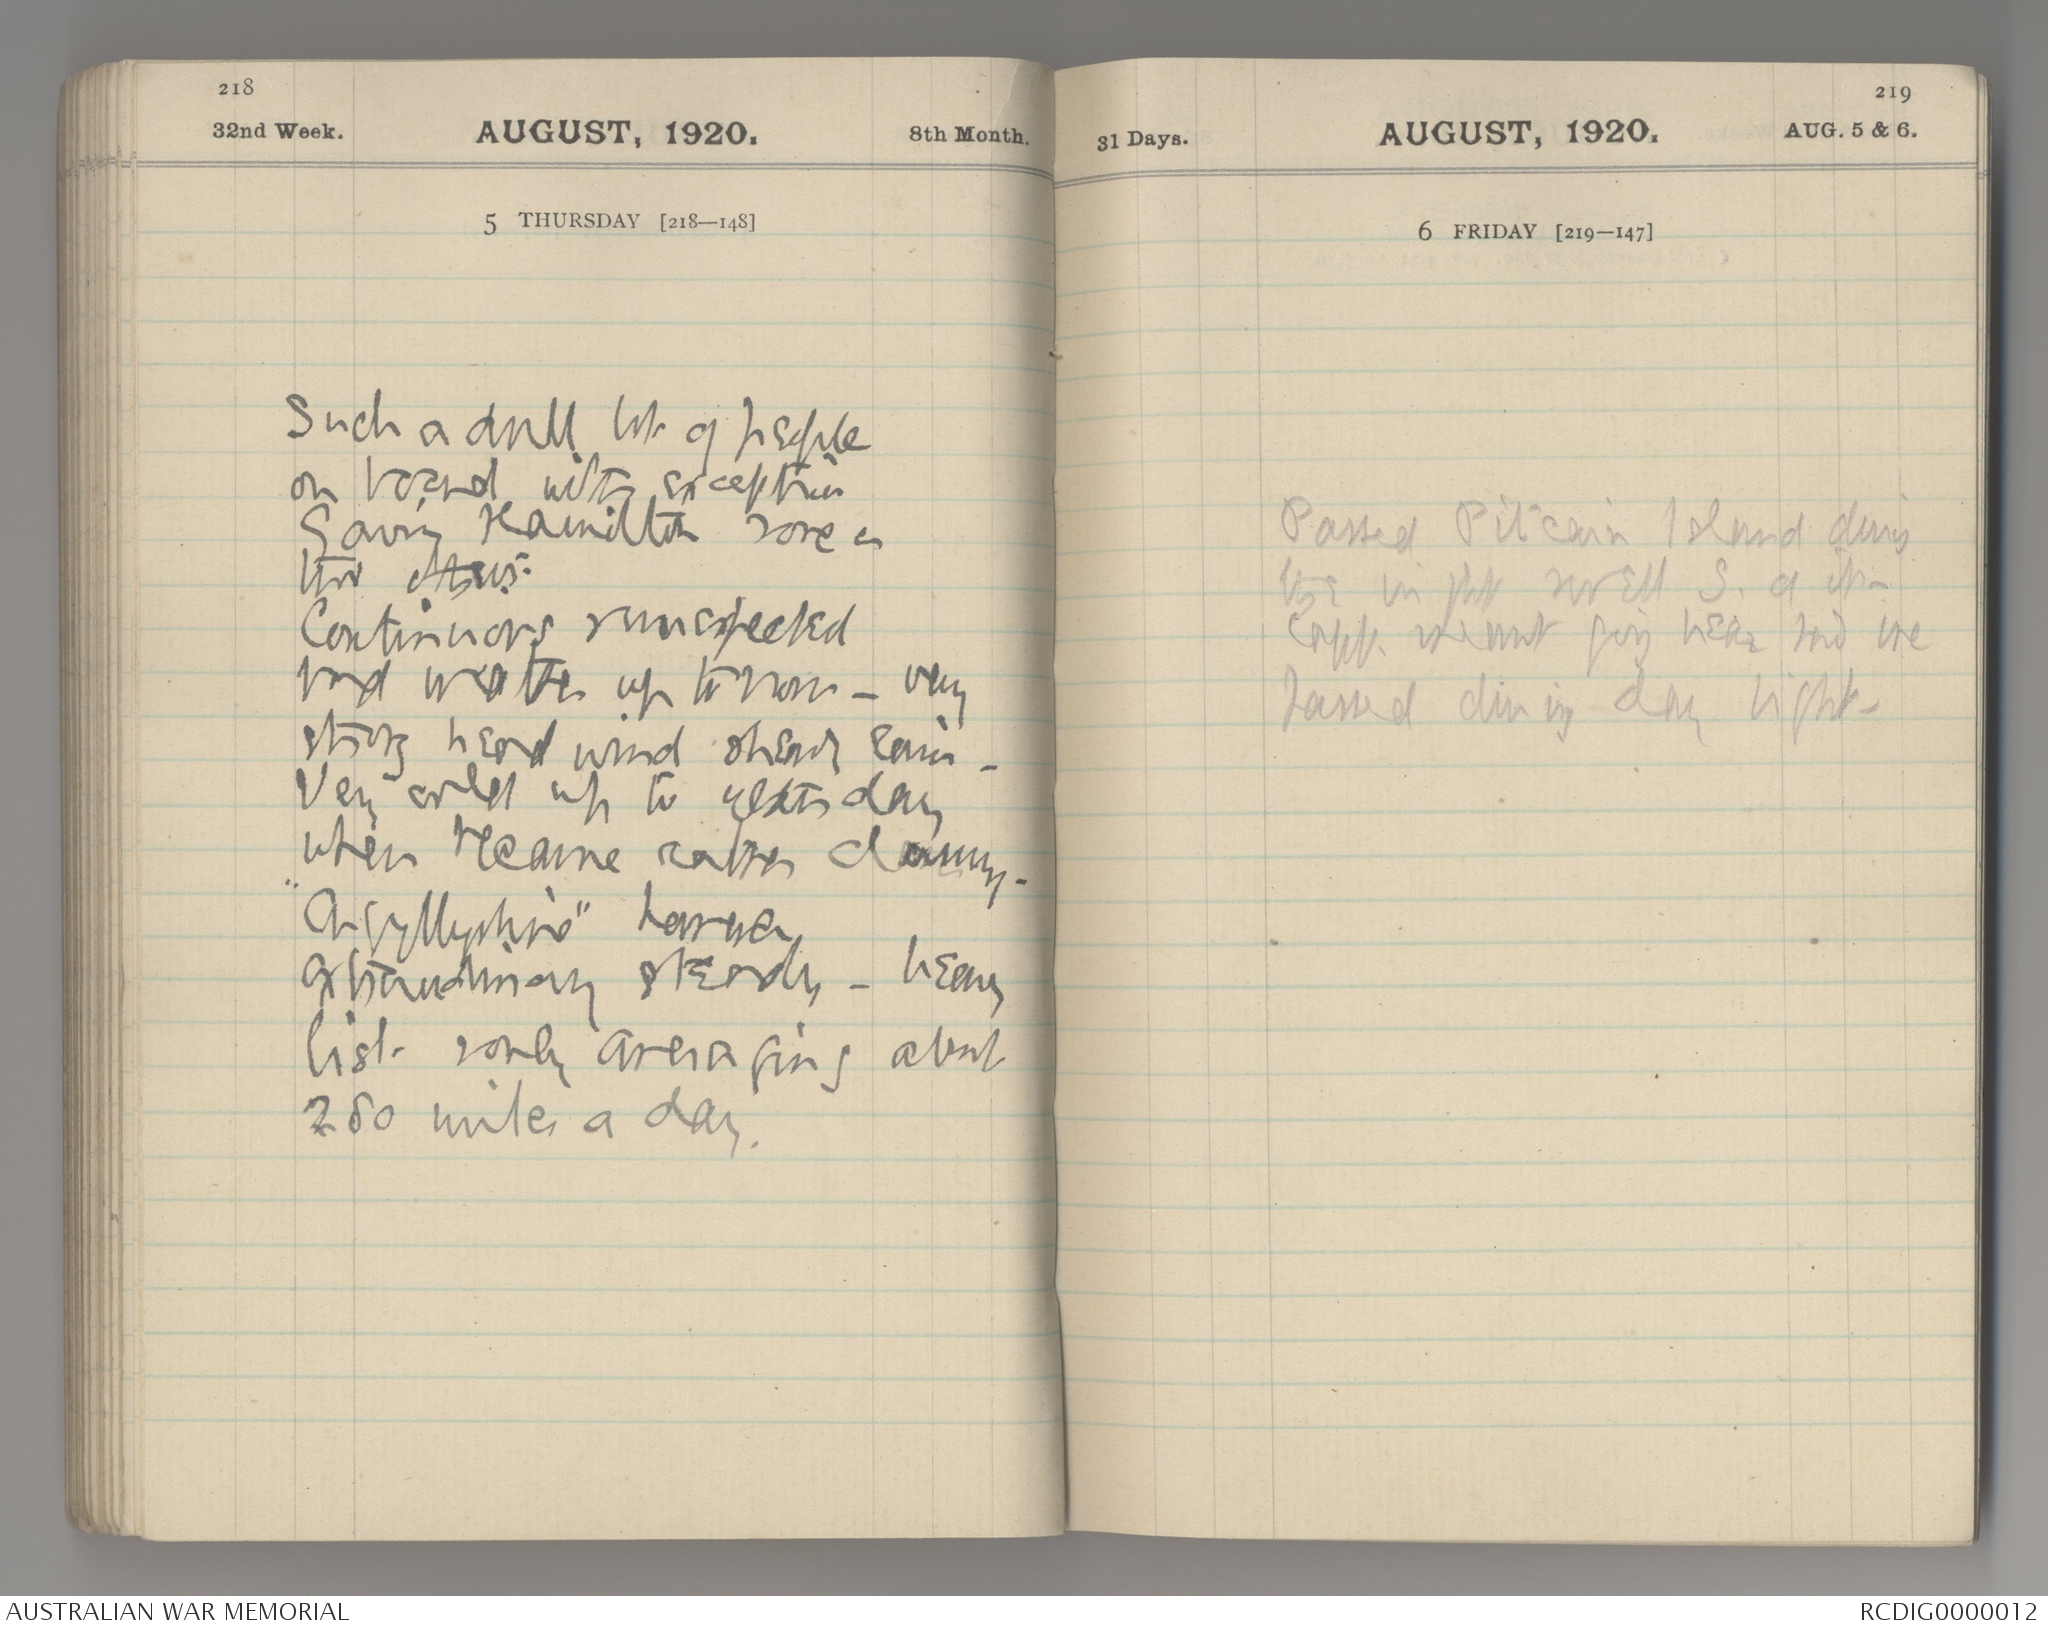 218
32nd Week.
AUGUST, 1920.
8th Month.
5 THURSDAY [218—148]
Such a dull lot of people
on board with exception
Gavin Hamilton &
two
Continuous
bad weather up to now – very
strong head wind steady rain –
Very cold up to yesterday
when became rather clammy –
"Argyllshire"
extraordinary steady – heavy
list & only averaging about
280 miles a day.
219
31 Days.
AUGUST, 1920.
AUG. 5 & 6.
6 FRIDAY [219—147]
Passed Pitcairn Island during
the night & well S. of it –
Capt. near had we
passed during day light –
AUSTRALIAN WAR MEMORIAL
RCDIG0000012